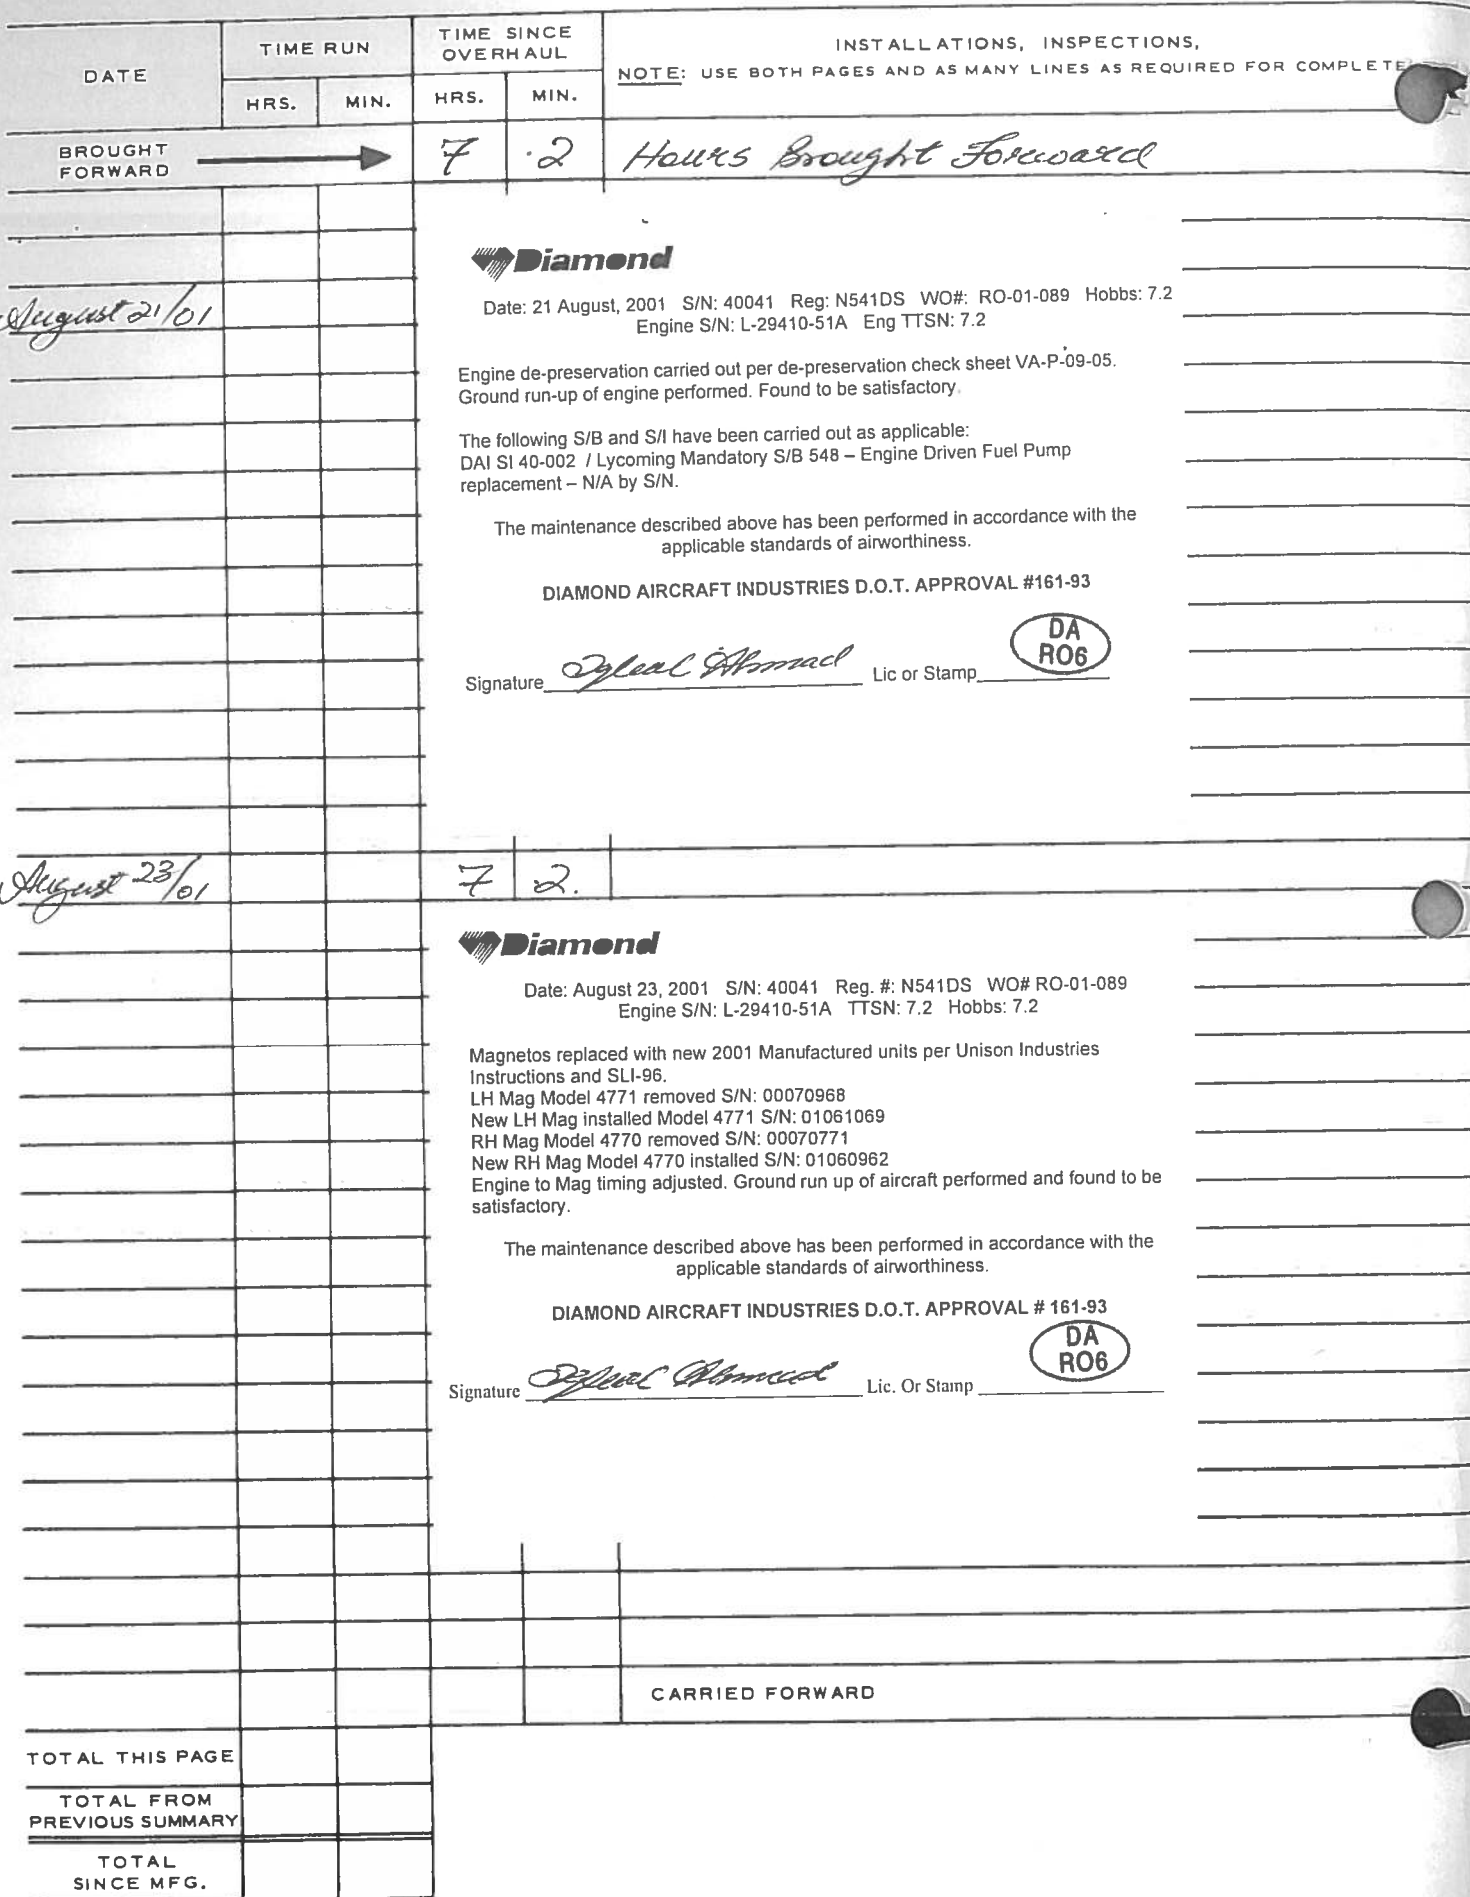 DATE
TIME RUN
TIME SINCE
OVERHAUL
INSTALLATIONS, INSPECTIONS,
NOTE: USE BOTH PAGES AND AS MANY LINES AS REQUIRED FOR COMPLETE
HRS. MIN. HRS. MIN.
BROUGHT
FORWARD
7 .2 Hours Brought Forward
Diamond
August 21/01
Date: 21 August, 2001 S/N: 40041 Reg: N541DS WO#: RO-01-089 Hobbs: 7.2
Engine S/N: L-29410-51A Eng TTSN: 7.2
Engine de-preservation carried out per de-preservation check sheet VA-P-09-05.
Ground run-up of engine performed. Found to be satisfactory.
The following S/B and S/I have been carried out as applicable:
DAI SI 40-002 / Lycoming Mandatory S/B 548 – Engine Driven Fuel Pump
replacement – N/A by S/N.
The maintenance described above has been performed in accordance with the
applicable standards of airworthiness.
DIAMOND AIRCRAFT INDUSTRIES D.O.T. APPROVAL #161-93
DA
RO6
Signature Lic or Stamp
August 23/01 7 2.
Diamond
Date: August 23, 2001 S/N: 40041 Reg. #: N541DS WO# RO-01-089
Engine S/N: L-29410-51A TTSN: 7.2 Hobbs: 7.2
Magnetos replaced with new 2001 Manufactured units per Unison Industries
Instructions and SLI-96.
LH Mag Model 4771 removed S/N: 00070968
New LH Mag installed Model 4771 S/N: 01061069
RH Mag Model 4770 removed S/N: 00070771
New RH Mag Model 4770 installed S/N: 01060962
Engine to Mag timing adjusted. Ground run up of aircraft performed and found to be
satisfactory.
The maintenance described above has been performed in accordance with the
applicable standards of airworthiness.
DIAMOND AIRCRAFT INDUSTRIES D.O.T. APPROVAL # 161-93
DA
RO6
Signature Lic. Or Stamp
CARRIED FORWARD
TOTAL THIS PAGE
TOTAL FROM
PREVIOUS SUMMARY
TOTAL
SINCE MFG.